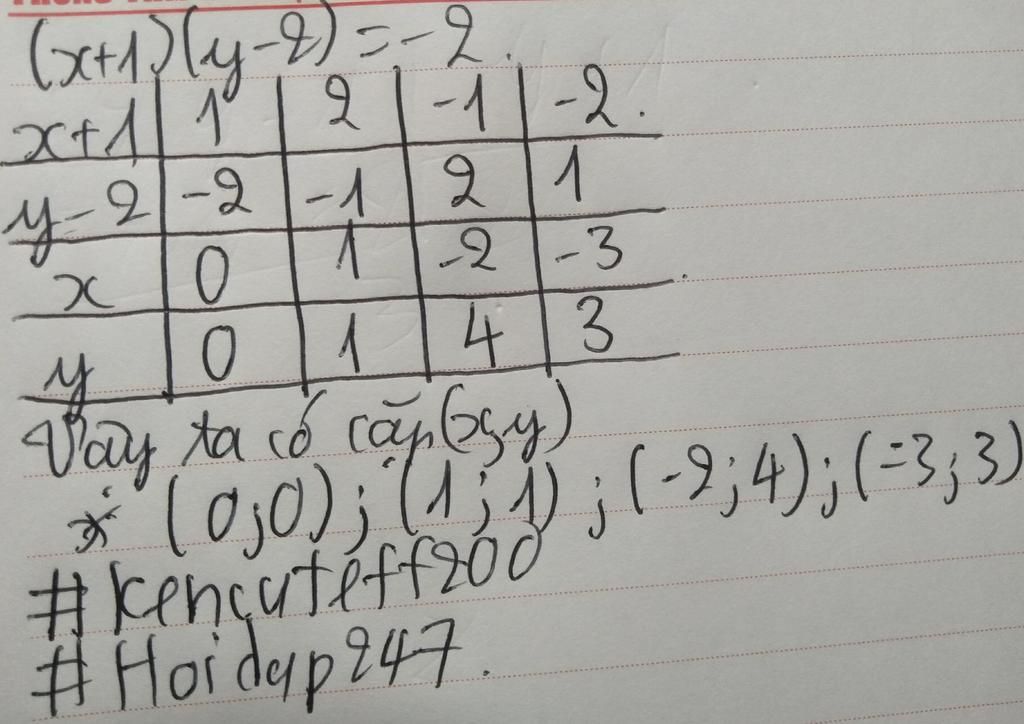 (x+1)(y-2)=-2.
x+1 1 2 -1 -2.
y-2 -2 -1 2 1
x 0 1 -2 -3
y 0 1 4 3
Vậy ta có cặp (x,y)
(0;0); (1;1); (-2;4); (-3;3)
#kencuteff200
#Hoidap247.